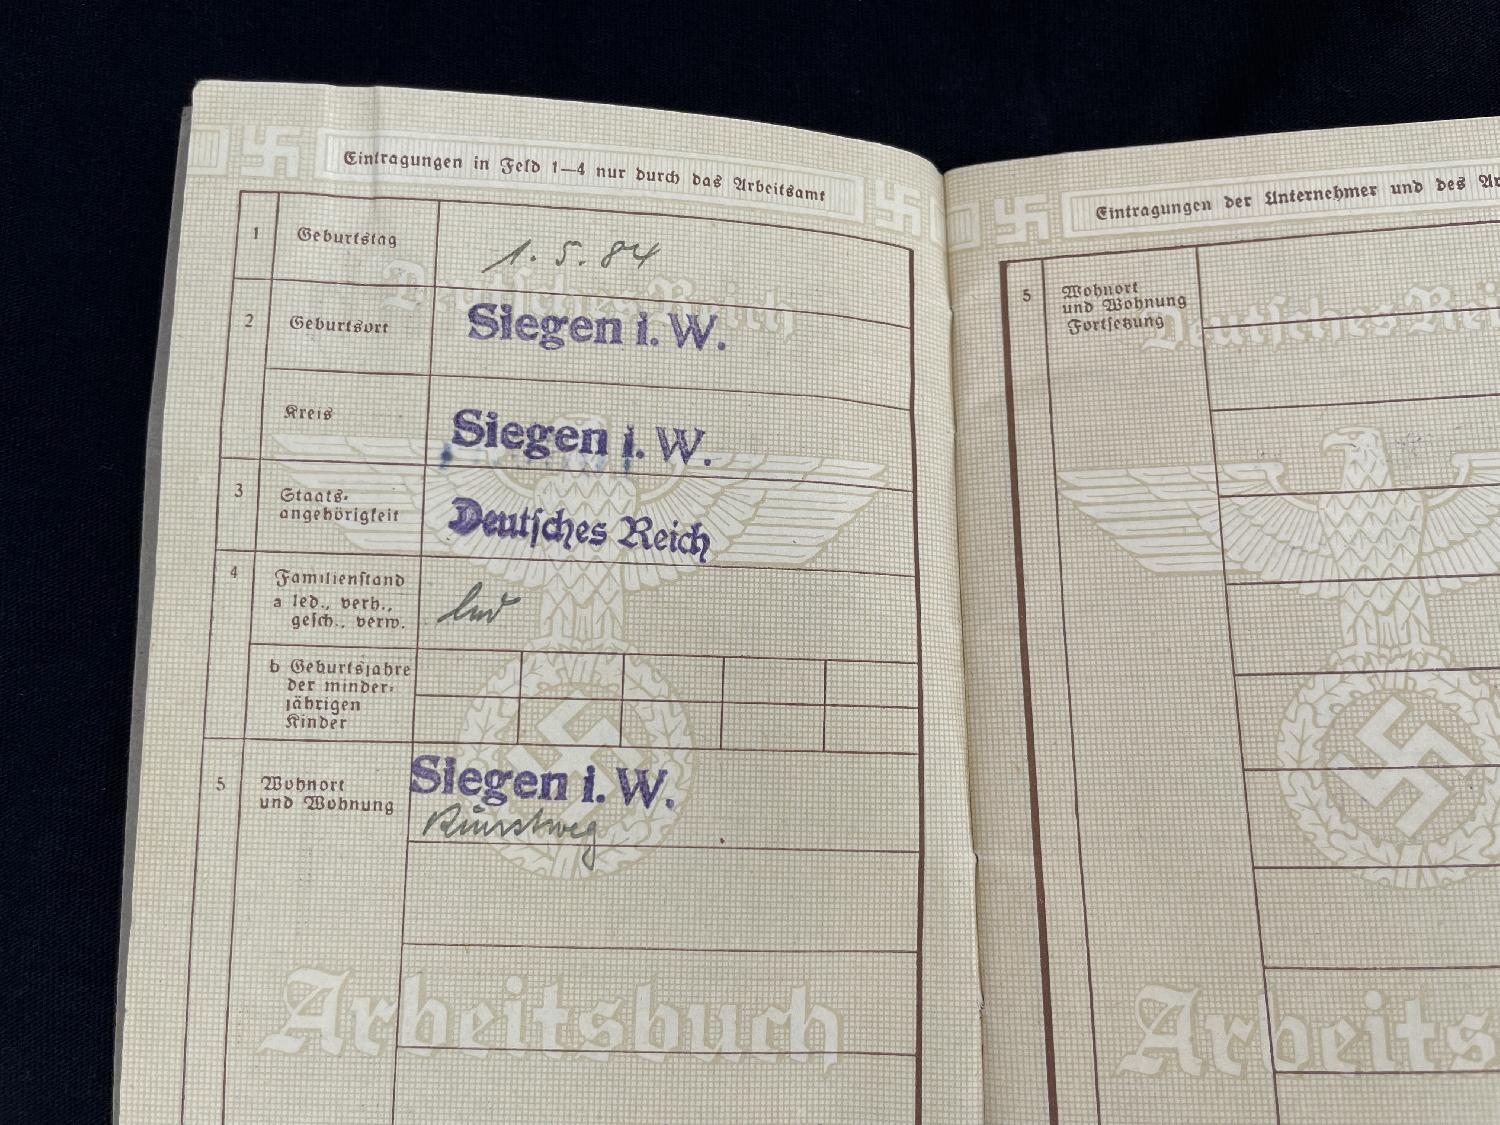 Eintragungen in Feld 1—4 nur durch das Arbeitsamt
1 Geburtstag 1. 5. 84
2 Geburtsort Siegen i. W.
Kreis Siegen i. W.
3 Staats-
angehörigkeit Deutsches Reich
4 Familienstand
a led., verh.,
gesch., verw.
b Geburtsjahre
der minder-
jährigen
Kinder
5 Wohnort
und Wohnung
Siegen i. W.
Deutsches Reich
Arbeitsbuch
Eintragungen der Unternehmer und des
5 Wohnort
und Wohnung
Fortsetzung
Deutsches